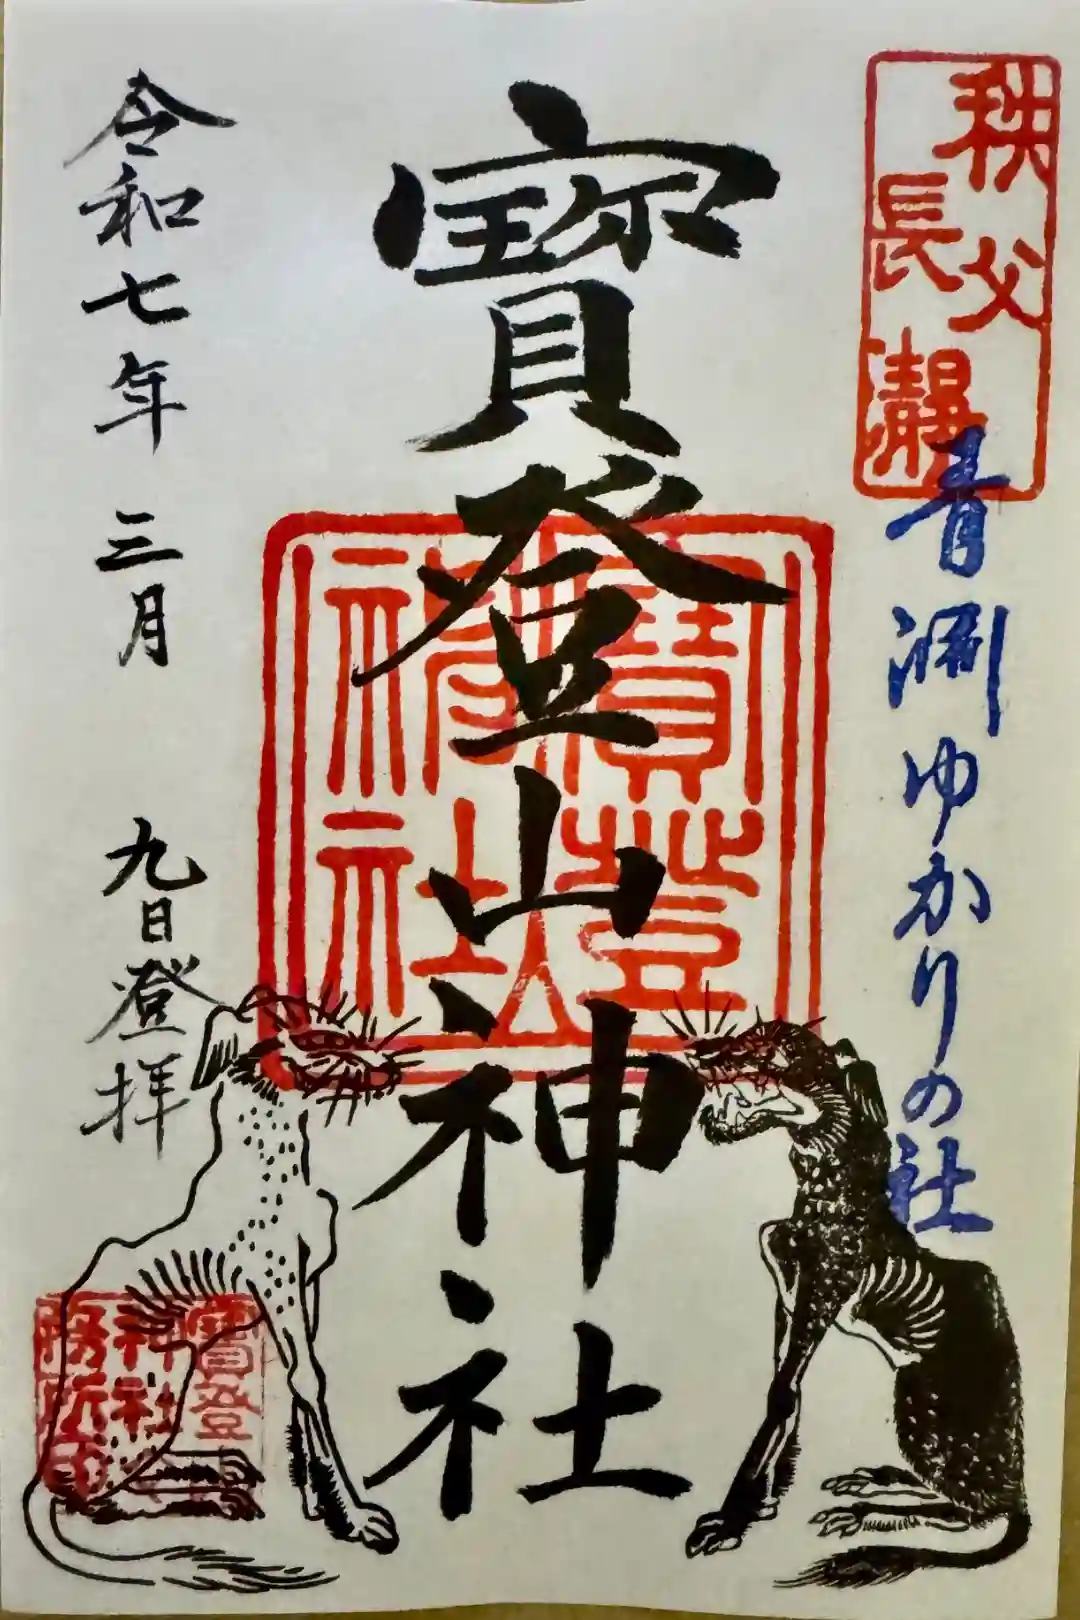 秩父
長瀞
青淵ゆかりの社
寳登山神社
寳登山
神社
令和七年 三月 九日登拝
寳登山
神社
務所印